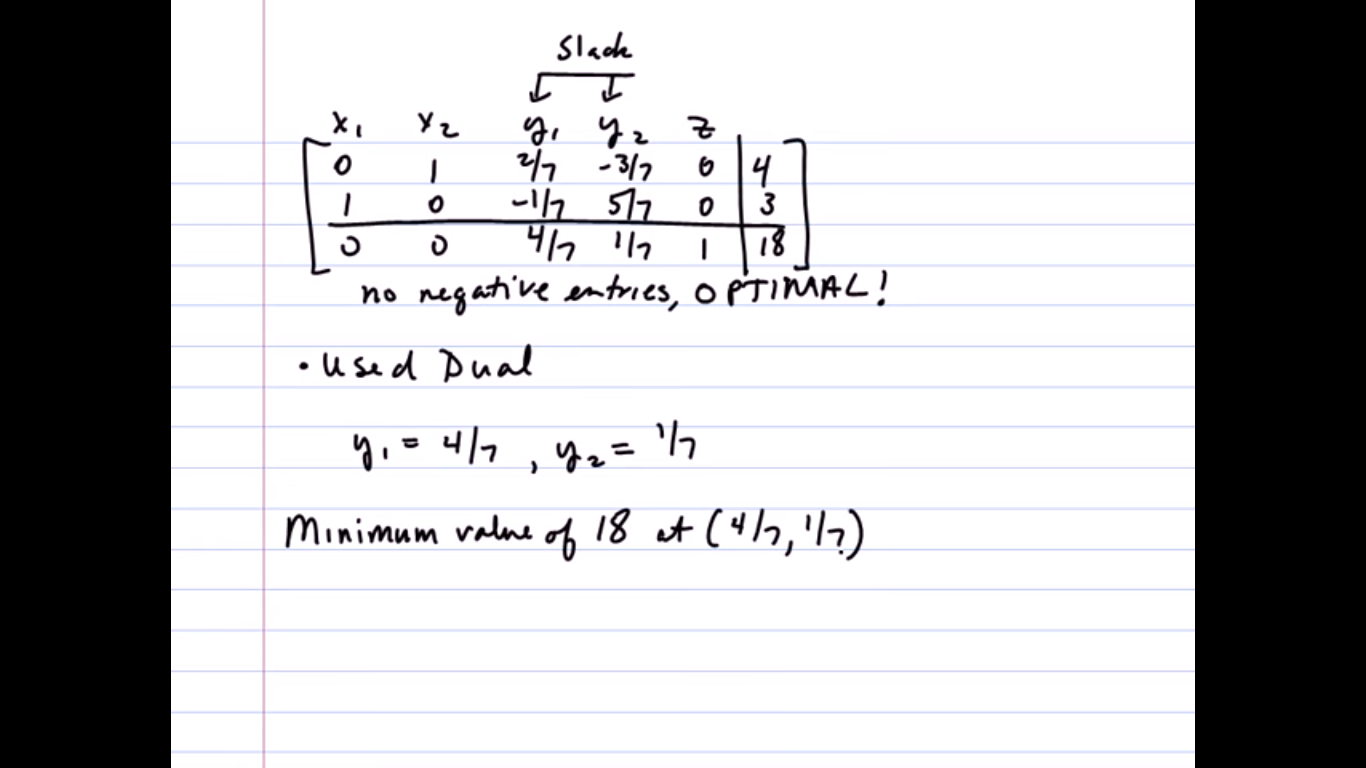 Slack
x₁ x₂ y₁ y₂ z
0 1 2/7 -3/7 0 4
1 0 -1/7 5/7 0 3
0 0 4/7 1/7 1 18
no negative entries, OPTIMAL!
• Used Dual
y₁ = 4/7 , y₂ = 1/7
Minimum value of 18 at (4/7, 1/7)